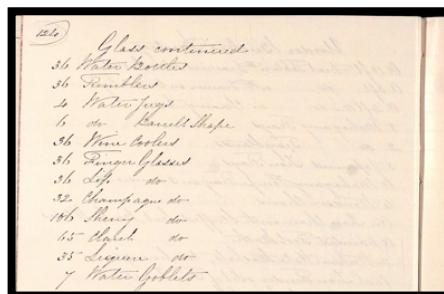 120
Glass continued
36 Water Bottles
36 Tumblers
4 Water Jugs
6 do Barrell Shape
36 Wine Coolers
36 Finger Glasses
36 Lip do
32 Champagne do
106 Sherry do
65 Claret do
35 Liqueur do
7 Water Goblets